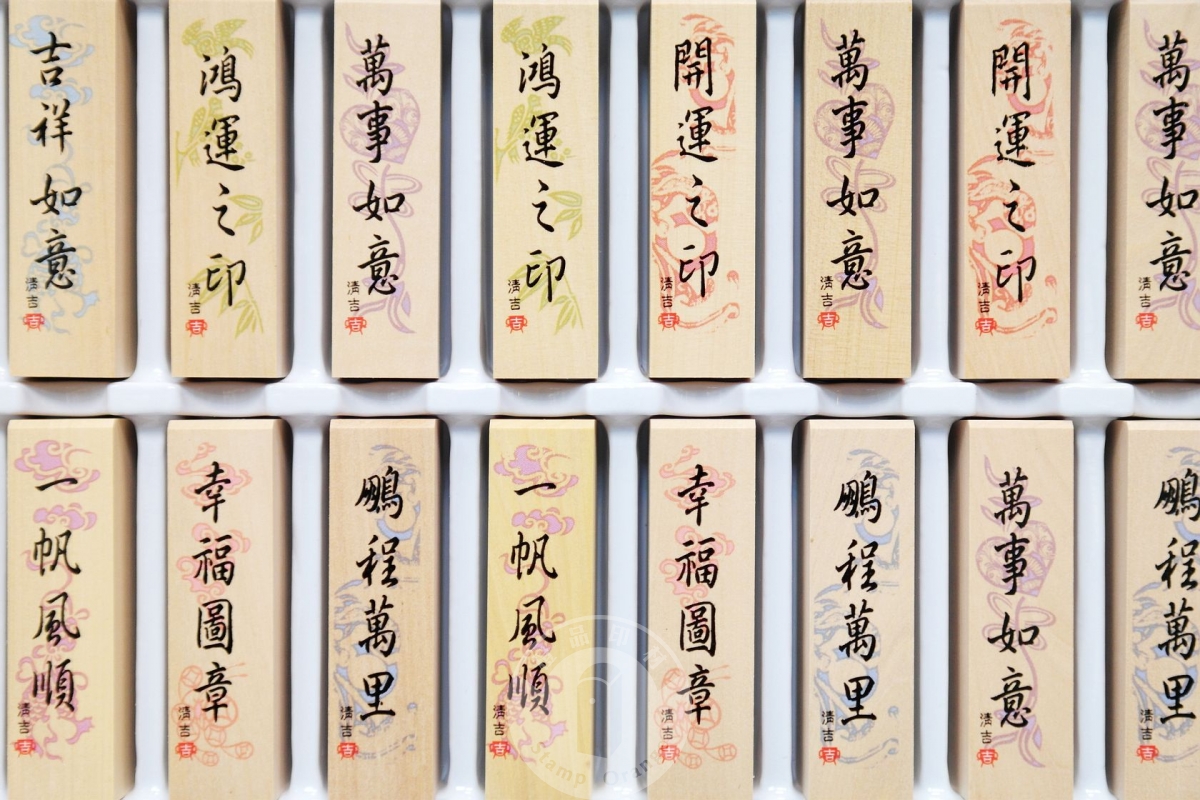 吉祥如意
清吉
吉
鴻運之印
清吉
吉
萬事如意
清吉
吉
鴻運之印
清吉
吉
開運之印
清吉
吉
萬事如意
清吉
吉
開運之印
清吉
吉
萬事如意
清吉
吉
一帆風順
清吉
吉
幸福圖章
清吉
吉
鵬程萬里
清吉
吉
一帆風順
清吉
吉
幸福圖章
清吉
吉
鵬程萬里
清吉
吉
萬事如意
清吉
吉
鵬程萬里
清吉
吉